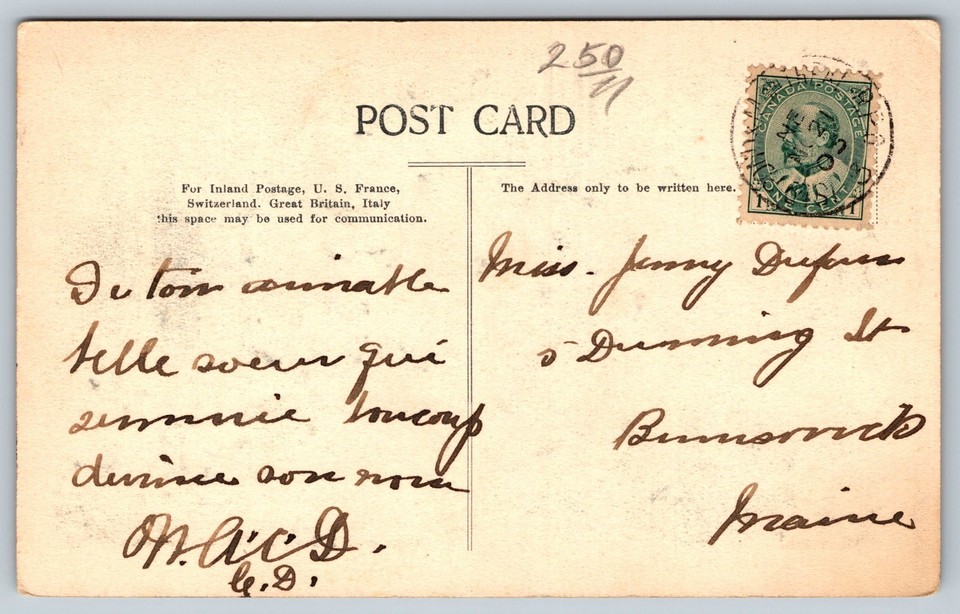 250/11
POST CARD
For Inland Postage, U. S. France,
Switzerland. Great Britain, Italy
this space may be used for communication.
The Address only to be written here.
CANADA POSTAGE
ONE CENT
De ton aimable
belle soeur qui
sennuie boucoup
devine son nom
M. A. C. D.
C. D.
Miss. Jenny
5 Dunning St
Brunsovick
Maine